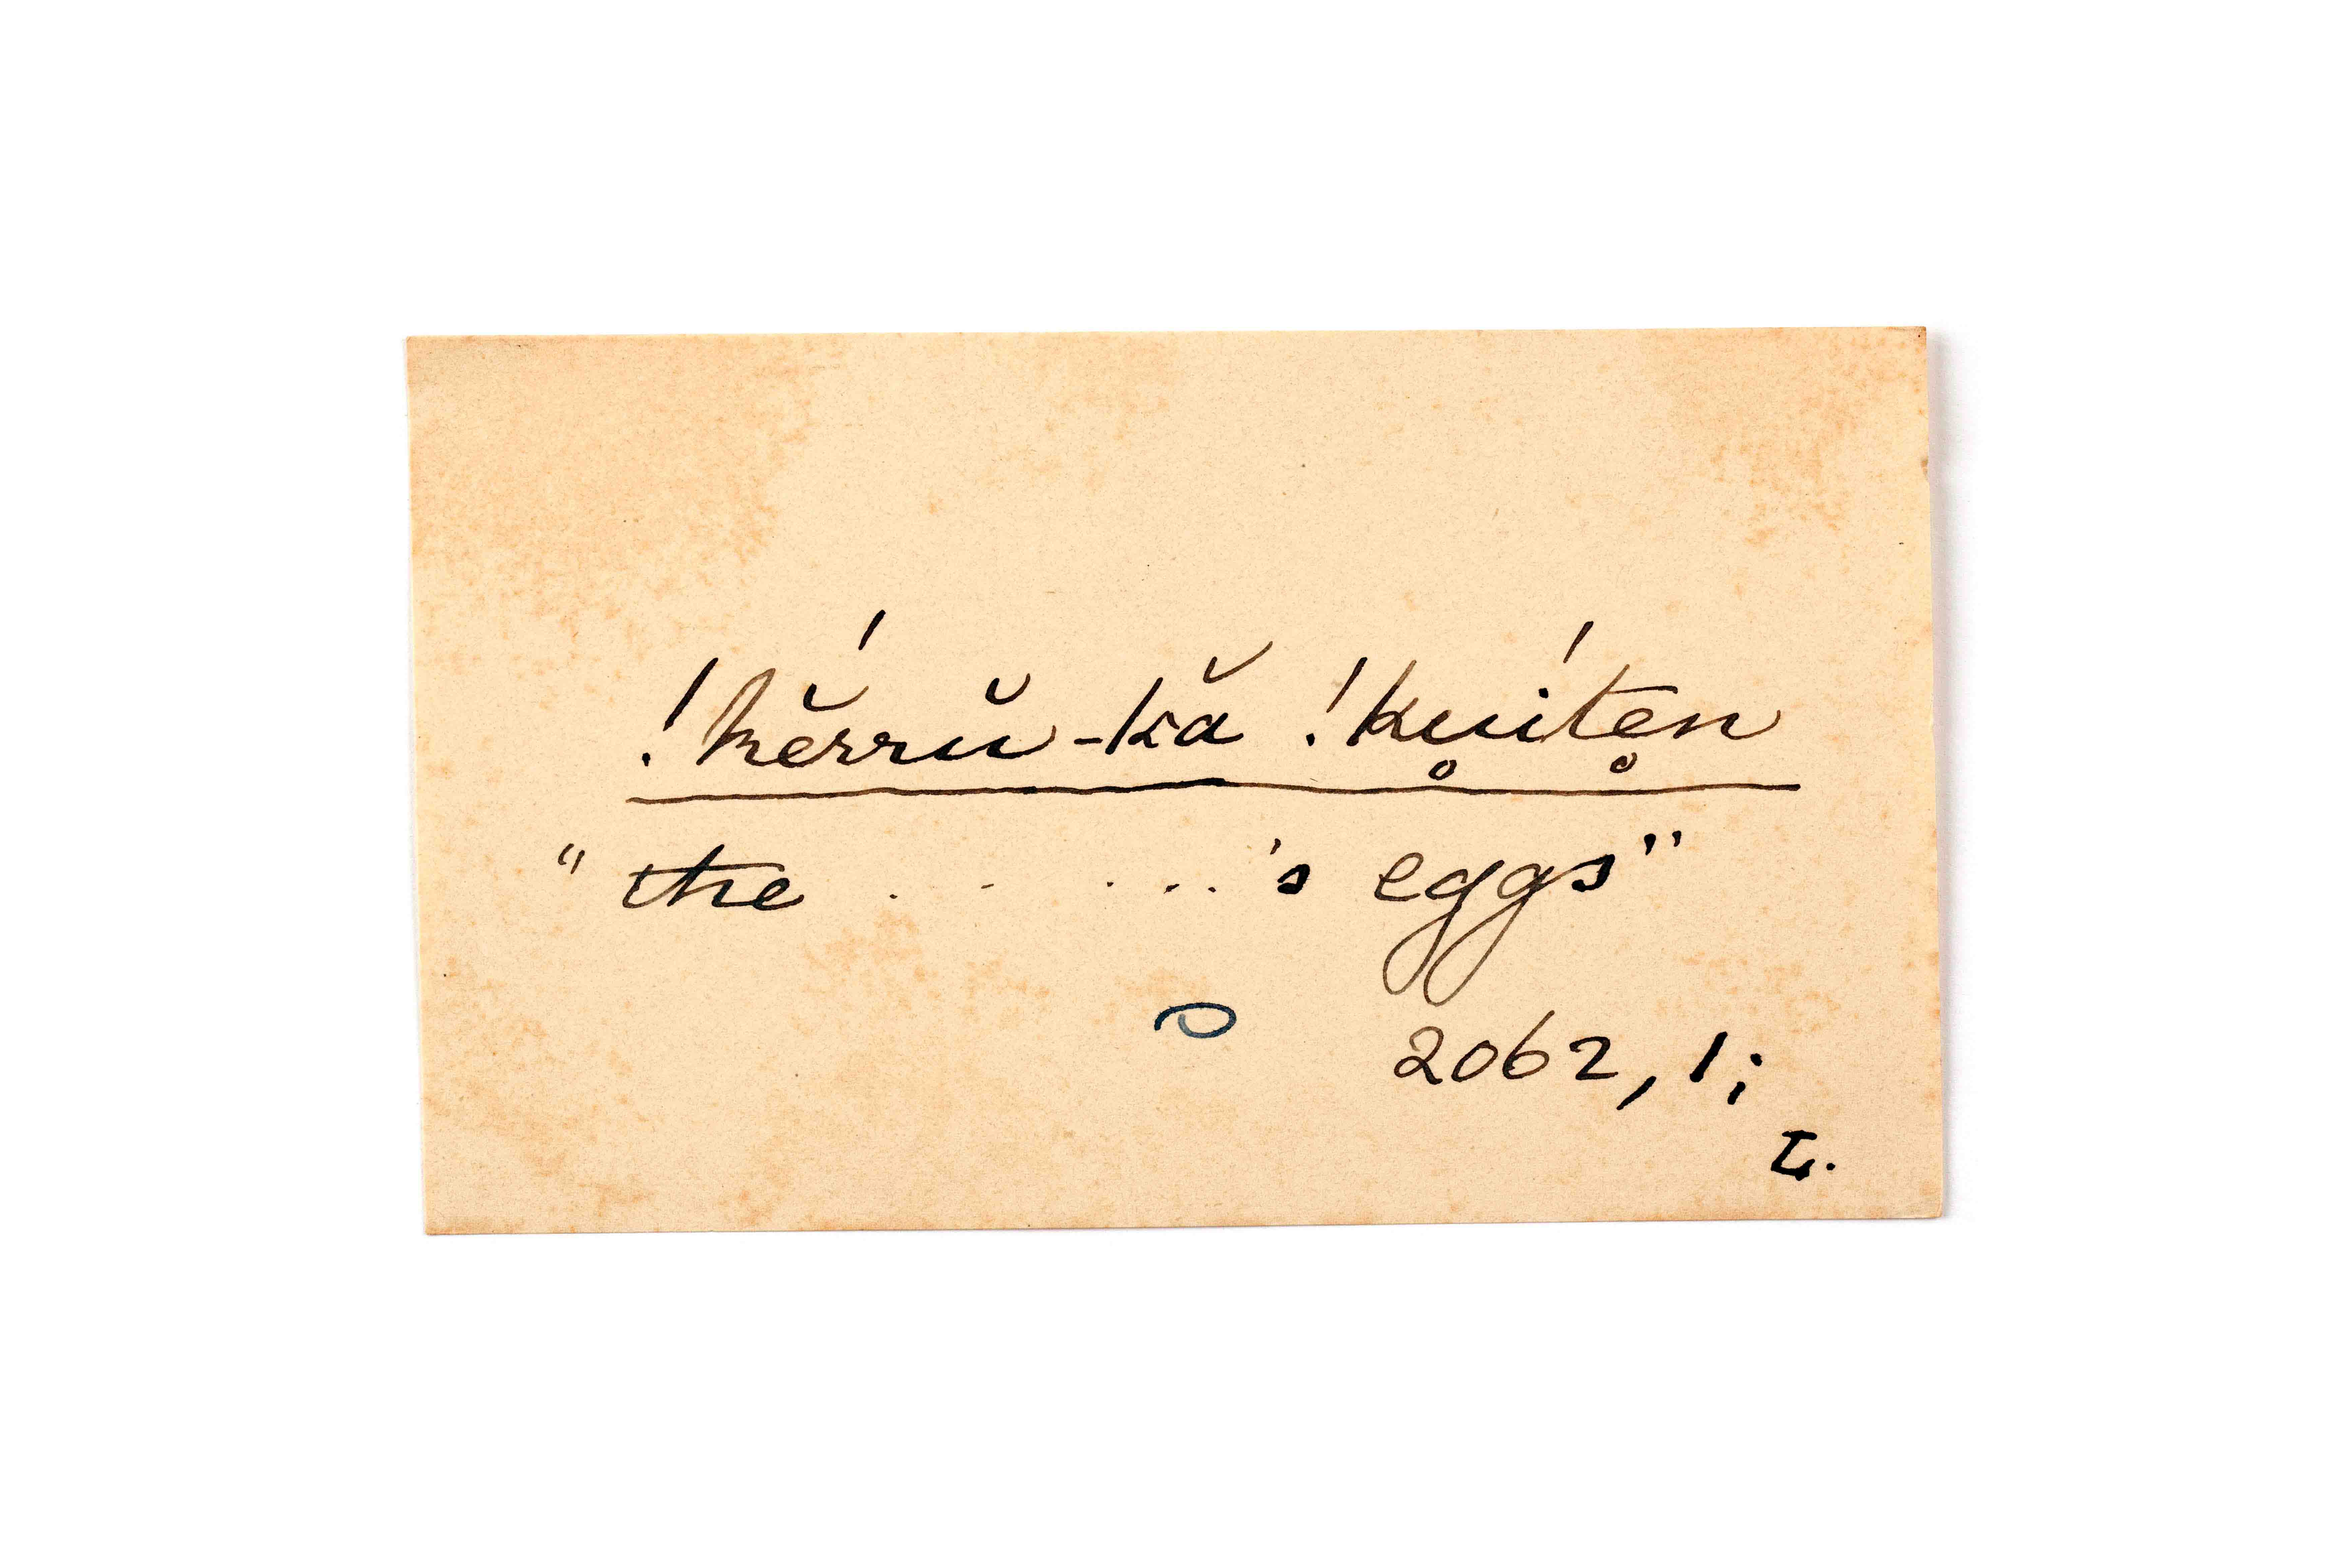 !kĕ́rrŭ-kă !ku̥íte̥n
"the . . . . . . 's eggs"
2062, 1;
L.